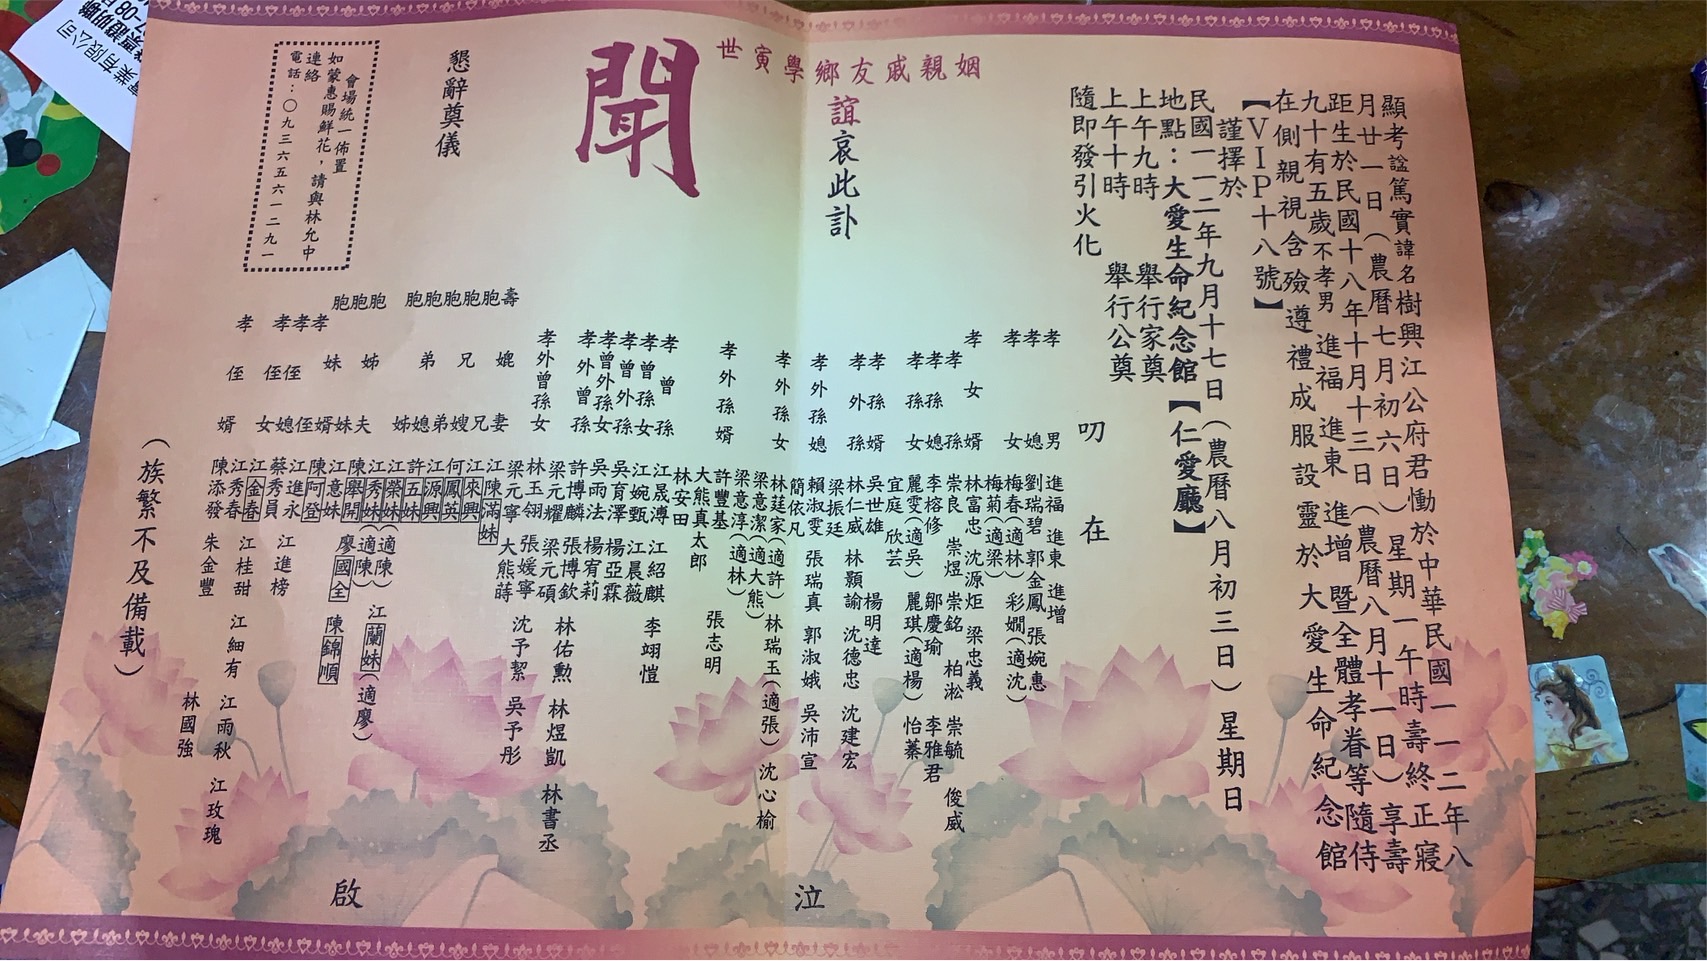 顯考諡篤實諱名樹興江公府君慟於中華民國一一二年八
月廿一日（農曆七月初六日）星期一午時壽終正寢
距生於民國十八年十月十三日（農曆八月十一日）享壽
九十有五歲不孝男 進福 進東 進增 暨全體孝眷等隨侍
在側親視含殮遵禮成服設靈於大愛生命紀念館
【VIP十八號】
謹擇於
民國一一二年九月十七日（農曆八月初三日）星期日
地點：大愛生命紀念館【仁愛廳】
上午九時 舉行家奠
上午十時 舉行公奠
隨即發引火化
叨在
姻親戚友鄉學寅世
誼哀此訃
聞
懇辭奠儀
會場統一佈置
如蒙惠賜鮮花，請與林允中
連絡
電話：〇九三六五六一二九一
孝男 進福 進東 進增
孝媳 劉瑞碧 郭金鳳 張婉惠
孝女 梅春（適林） 彩嫺（適沈）
梅菊（適梁）
孝女婿 林富忠 沈源炬 梁忠義
孝孫 崇良 崇煜 崇銘 柏淞 崇毓 俊威
孝孫媳 李榕修 鄒慶瑜 李雅君
孝孫女 麗雯（適吳） 麗琪（適楊） 怡蓁
宜庭 欣芸
孝孫婿 吳世雄 楊明達
孝外孫 林仁威 林顥諭 沈德忠 沈建宏
梁振廷
孝外孫媳 賴淑雯 張瑞真 郭淑娥 吳沛宣
簡依凡
孝外孫女 林莛家（適許） 林瑞玉（適張） 沈心榆
梁意潔（適大熊）
梁意淳（適林）
孝外孫婿 許豐基 張志明
大熊真太郎
林安田
孝曾孫 江晟溥 江紹麒 李翊愷
孝曾孫女 江婉甄 江晨薇
孝曾外孫 吳育澤 楊亞霖
孝曾外孫女 吳雨法 楊宥莉
孝外曾孫 許博麟 張博欽 林佑勲 林煜凱 林書丞
梁元耀 梁元碩
孝外曾孫女 林玉翎 張媛寧 沈予絜 吳予彤
梁元寧 大熊蒔
壽妻 江陳滿妹
胞兄 江來興
胞嫂 何鳳英
胞弟 江源興
胞弟媳 許五妹
胞姊 江榮妹（適陳） 江蘭妹（適廖）
江秀妹（適陳）
胞姊夫 陳舉開 廖國全 陳錦順
胞妹 江意妹
胞妹婿 陳阿登
孝侄 江進永 江進榜
孝侄媳 蔡秀員
孝侄女 江金春 江桂甜 江細有 江雨秋 江玫瑰
江秀春
孝侄婿 陳添發 朱金豐 林國強
（族繁不及備載）
泣啟